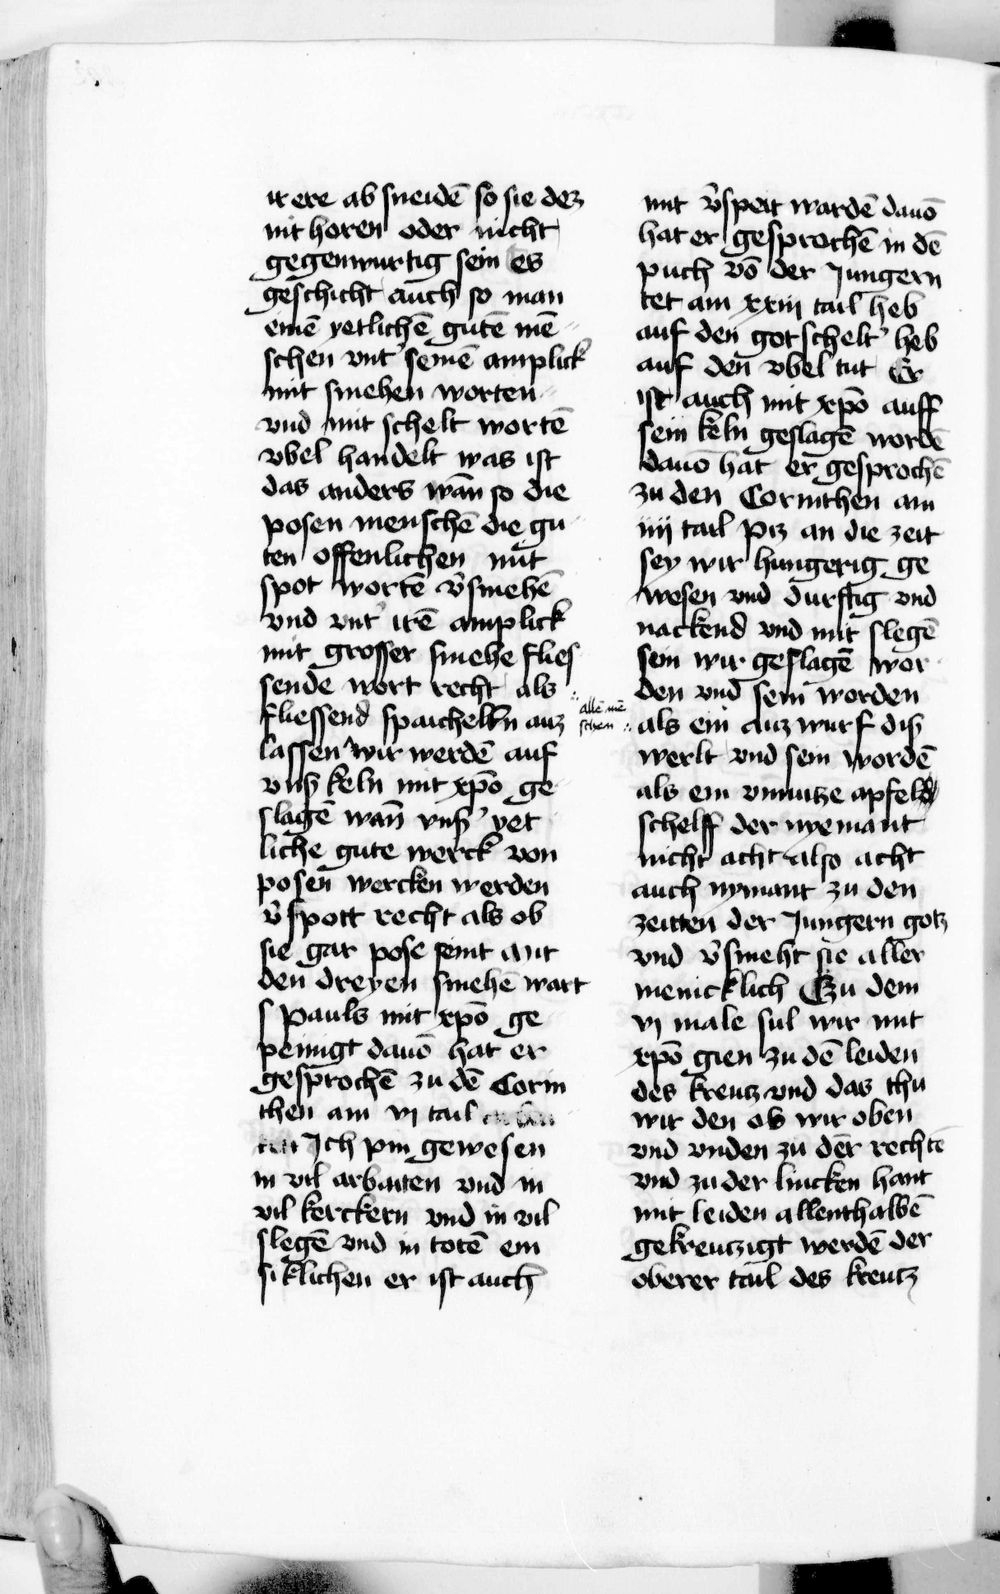 ir ere ab sneidē so sie dez
nit horen oder nicht
gegenwurtig sein es
geschicht auch so man
einē yetlichē gutē mē
schen vnt' seinē amplick
mit smehen worten
vnd mit schelt wortē
vbel handelt was ist
das anders wān so die
posen menschē die gu
ten offenlichen mit
spot wortē v̄smehē
vnd vnt' irē amplick
mit grosser smehe flies
sende wort recht als
fliessend spaichelln auz
lassen wir werdē auf
vnß keln mit xp̄o ge
slagē wān vnß' yet
liche gute werck von
posen wercken werden
v̄spott recht als ob
sie gar pose seint mit
den dreyen smehē wart
s pauls mit xp̄o ge
peinigt dauō hat er
gesprochē zu dē Corin
then am vi tail
Ich pin gewesen
in vil arbaiten vnd in
vil kerckern vnd in vil
slegē vnd in totē em
siklichen er ist auch
mit v̄speit wardē dauō
hat er gesprochē in dē
puch vō der Jungern
tet am xxiii tail heb
auf den gotschelt' heb
auf den vbel tut Er
ist auch mit xp̄o auff
sein keln geslagē wordē
dauō hat er gesprochē
zu den Corinthen am
iiii tail piz an die zeit
sey wir hungerig ge
wesen vnd durftig vnd
nackend vnd mit slegē
sein wir geslagē wor
den vnd sein worden
allē mē
schen
als ein auzwurf diß
werlt vnd sein wordē
als ein vnnutze apfel
schelff der nyemant
nicht acht also acht
auch nymant zu den
zeitten der Jungern gotz
vnd v̄smeht sie aller
menicklich Czu dem
vi male sul wir mit
xp̄o gien zu dē leiden
des kreutz vnd das thu
wir den ob wir oben
vnd vnden zu der rechtē
vnd zu der lincken hant
mit leiden allenthalbē
gekreutzigt werdē der
oberer tail des kreutz